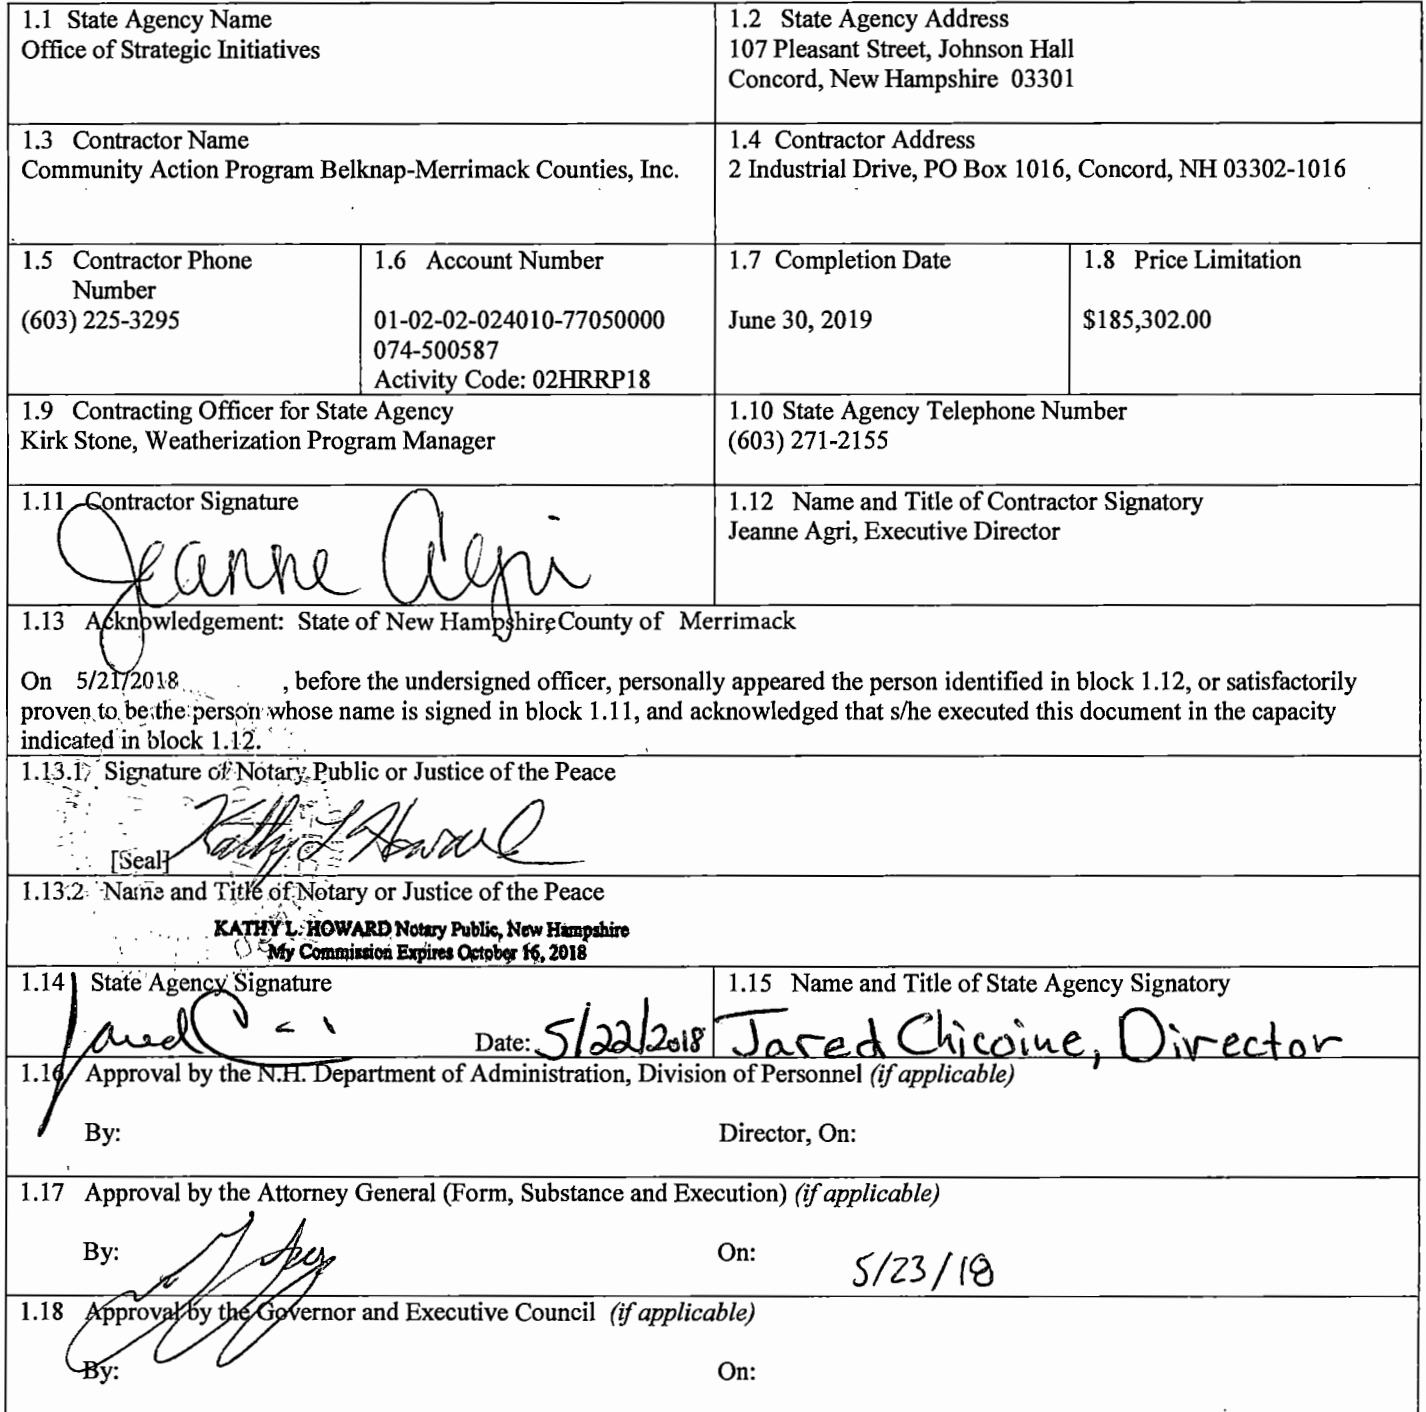 1.1 State Agency Name
Office of Strategic Initiatives
1.2 State Agency Address
107 Pleasant Street, Johnson Hall
Concord, New Hampshire 03301
1.3 Contractor Name
Community Action Program Belknap-Merrimack Counties, Inc.
1.4 Contractor Address
2 Industrial Drive, PO Box 1016, Concord, NH 03302-1016
1.5 Contractor Phone
Number
(603) 225-3295
1.6 Account Number
01-02-02-024010-77050000
074-500587
Activity Code: 02HRRP18
1.7 Completion Date
June 30, 2019
1.8 Price Limitation
$185,302.00
1.9 Contracting Officer for State Agency
Kirk Stone, Weatherization Program Manager
1.10 State Agency Telephone Number
(603) 271-2155
1.11 Contractor Signature
Jeanne Agri
1.12 Name and Title of Contractor Signatory
Jeanne Agri, Executive Director
1.13 Acknowledgement: State of New Hampshire County of Merrimack
On 5/21/2018 , before the undersigned officer, personally appeared the person identified in block 1.12, or satisfactorily
proven to be the person whose name is signed in block 1.11, and acknowledged that s/he executed this document in the capacity
indicated in block 1.12.
1.13.1 Signature of Notary Public or Justice of the Peace
Kathy L Howard
[Seal]
1.13.2 Name and Title of Notary or Justice of the Peace
KATHY L. HOWARD Notary Public, New Hampshire
My Commission Expires October 16, 2018
1.14 State Agency Signature
Jared C
Date: 5/22/2018
1.15 Name and Title of State Agency Signatory
Jared Chicoine, Director
1.16 Approval by the N.H. Department of Administration, Division of Personnel (if applicable)
By: Director, On:
1.17 Approval by the Attorney General (Form, Substance and Execution) (if applicable)
By: On: 5/23/18
1.18 Approval by the Governor and Executive Council (if applicable)
By: On: